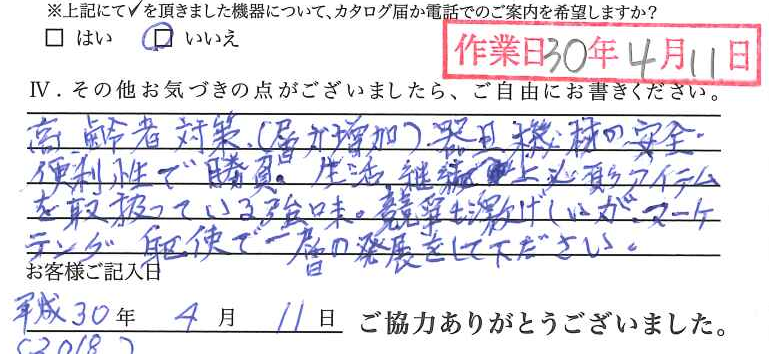 ※上記にて✓を頂きました機器について、カタログ届か電話でのご案内を希望しますか?
□ はい □ いいえ
作業日30年4月11日
Ⅳ．その他お気づきの点がございましたら、ご自由にお書きください。
高齢者対策、(層が増加)器具機材の安全・
便利性で勝負。生活継続上必須アイテム
を取扱っている強味。競争も激げしいが、マーケ
テング駆使で一層の発展をして下ださい。
お客様ご記入日
平成30年 4月 11日 ご協力ありがとうございました。
(2018)